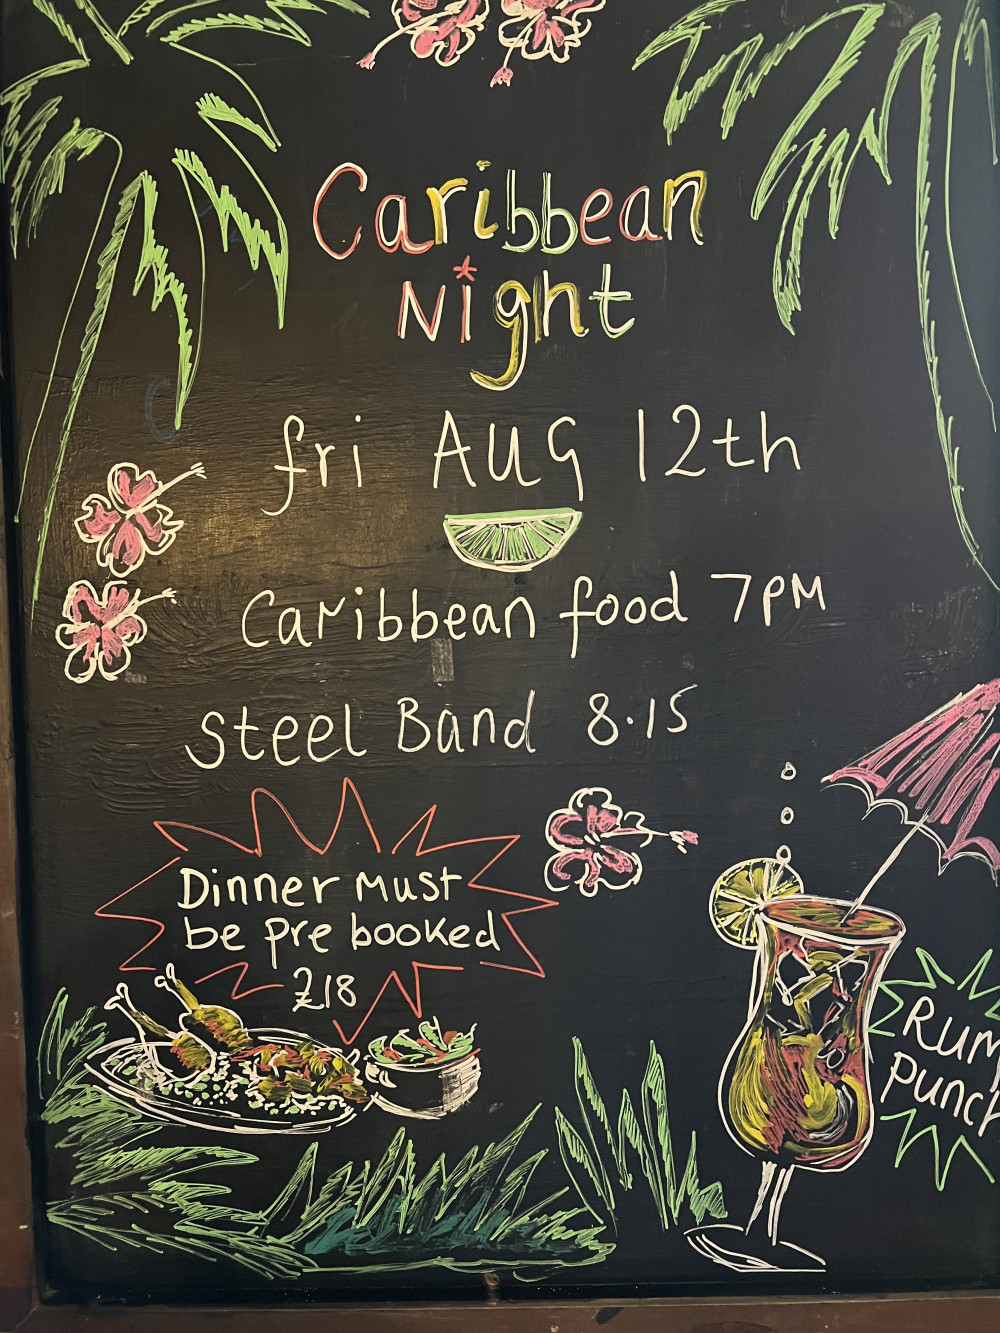 Caribbean
Night
fri AUG 12th
Caribbean food 7PM
Steel Band 8.15
Dinner Must
be pre booked
£18
RUM
PUNCH